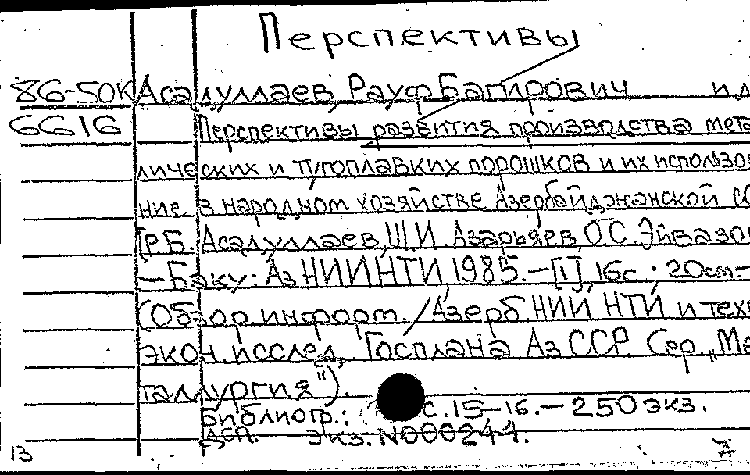 Перспективы
86-50К Асадуллаев Рауф Багирович и д
6616 Перспективы развития производства мета
лических и тугоплавких порошков и их использо
ние в народном хозяйстве Азербайджанской
[Р.Б. Асадуллаев, Ш.И. Азарьяев, О.С. Эйвазо
— Баку: АзНИИНТИ, 1985. — [1], 16с.; 20см —
(Обзор. информ. / Азерб. НИИ НТИ и техн
экон. исслед. Госплана Аз ССР. Сер. „Ме
таллургия").
Библиогр.: с. 15-16. — 250 экз.
Деп. экз. N000244.
13